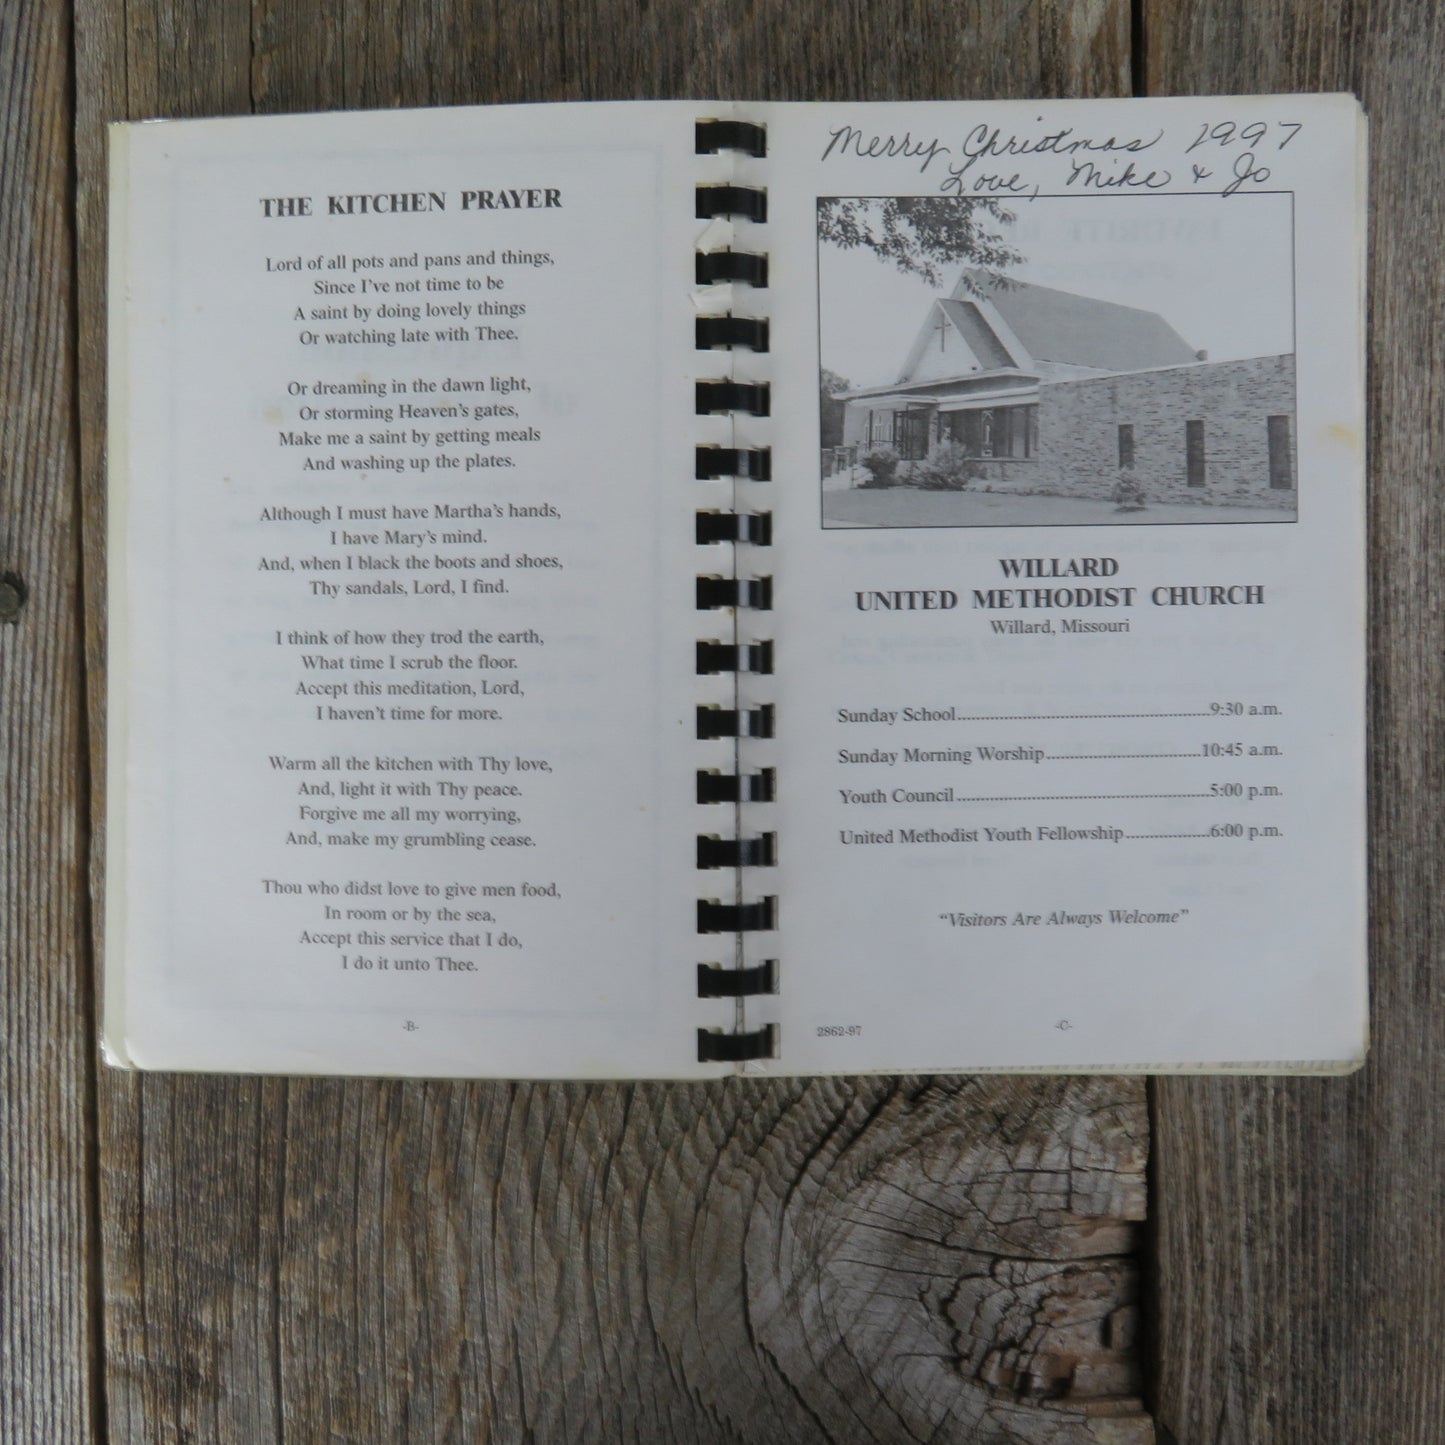 THE KITCHEN PRAYER
Lord of all pots and pans and things,
Since I've not time to be
A saint by doing lovely things
Or watching late with Thee.
Or dreaming in the dawn light,
Or storming Heaven's gates,
Make me a saint by getting meals
And washing up the plates.
Although I must have Martha's hands,
I have Mary's mind.
And, when I black the boots and shoes,
Thy sandals, Lord, I find.
I think of how they trod the earth,
What time I scrub the floor.
Accept this meditation, Lord,
I haven't time for more.
Warm all the kitchen with Thy love,
And, light it with Thy peace.
Forgive me all my worrying,
And, make my grumbling cease.
Thou who didst love to give men food,
In room or by the sea,
Accept this service that I do,
I do it unto Thee.
-B-
Merry Christmas 1997
Love, Mike & Jo
WILLARD
UNITED METHODIST CHURCH
Willard, Missouri
Sunday School 9:30 a.m.
Sunday Morning Worship 10:45 a.m.
Youth Council 5:00 p.m.
United Methodist Youth Fellowship 6:00 p.m.
"Visitors Are Always Welcome"
2862-97
-C-